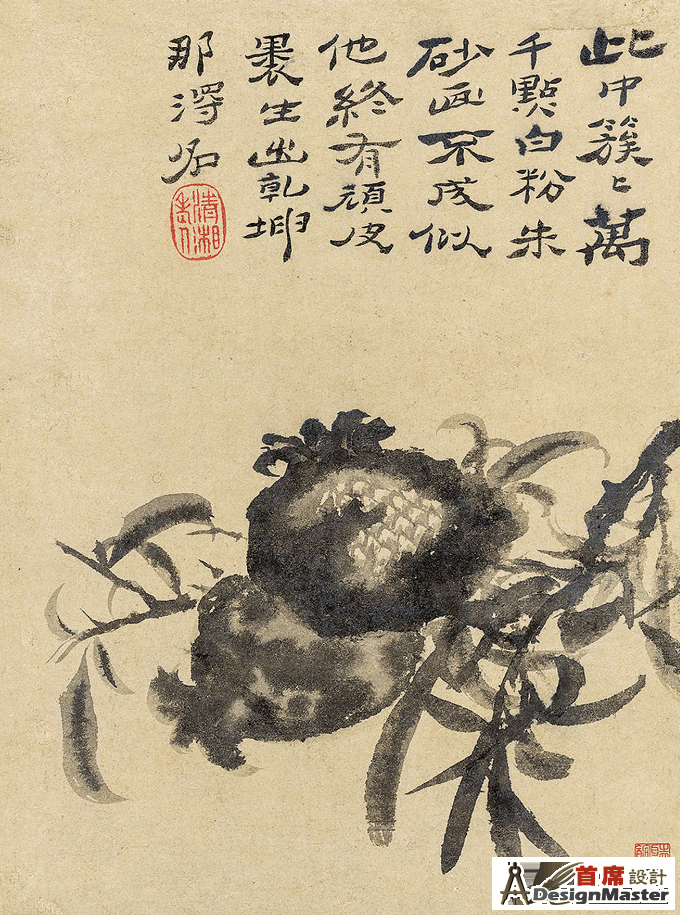 此中簇〻萬
千點白粉朱
砂画不成似
他終有頑皮
裹生出乾坤
那淂名
清湘
老人
首席設計
DesignMaster